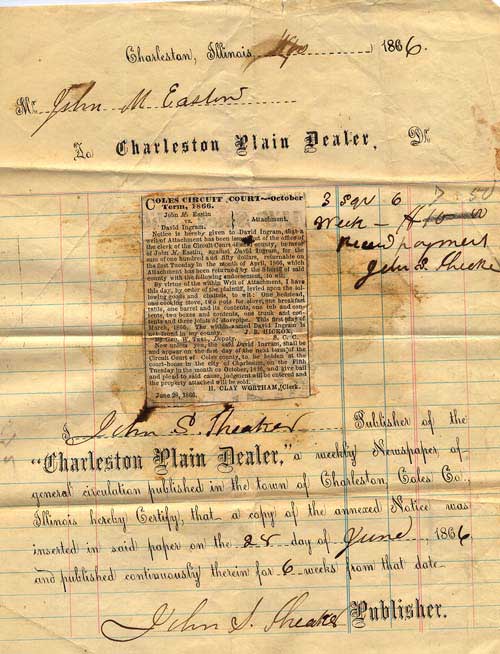 Charleston, Illinois, 1866.
Mr John M Eastin
To Charleston Plain Dealer, Dr
COLES CIRCUIT COURT—October
Term, 1866.
John M. Eastin
vs. Attachment.
David Ingram.
Notice is hereby given to David Ingram, that a
writ of Attachment has been issued out of the office of
the clerk of the Circuit Court of county, in favor
of John M. Eastin, against David Ingram, for the
sum of one hundred and fifty dollars, returnable on
the first Tuesday in the month of April, 1866, which
Attachment has been returned by the Sheriff of said
county with the following endorsement, to wit:
By virtue of the within Writ of Attachment, I have
this day, by order of the plaintiff, levied upon the fol-
lowing goods and chattels, to wit: One bedstead,
one cooking stove, two pots for stove, one breakfast
table, one barrel and its contents, one tub and con-
tents, two boxes and contents, one trunk and con-
tents and three joints of stovepipe. This first day of
March, 1866. The within named David Ingram is
not found in my county. J. R. HICKOX,
By Geo. W. Deputy. S. C. C.
Now unless you, the said David Ingram, shall be
and appear on the first day of the next term of the
Circuit Court of Coles county, to be holden at the
court-house in the city of Charleston, on the Fifth
Tuesday in the month of October, 1866, and give bail
and plead to said cause, judgment will be entered and
the property attached will be sold.
H. CLAY WORTHAM, Clerk.
June 28, 1866.
3 sqr 6 7 50
Week —
Recd payment
John S. Theaker
I John S. Theaker Publisher of the
"Charleston Plain Dealer," a weekly Newspaper of
general circulation published in the town of Charleston, Coles Co.,
Illinois hereby Certify, that a copy of the annexed Notice was
inserted in said paper on the 28 day of June, 1866
and published continuously therein for 6 weeks from that date
John S. Theaker Publisher.